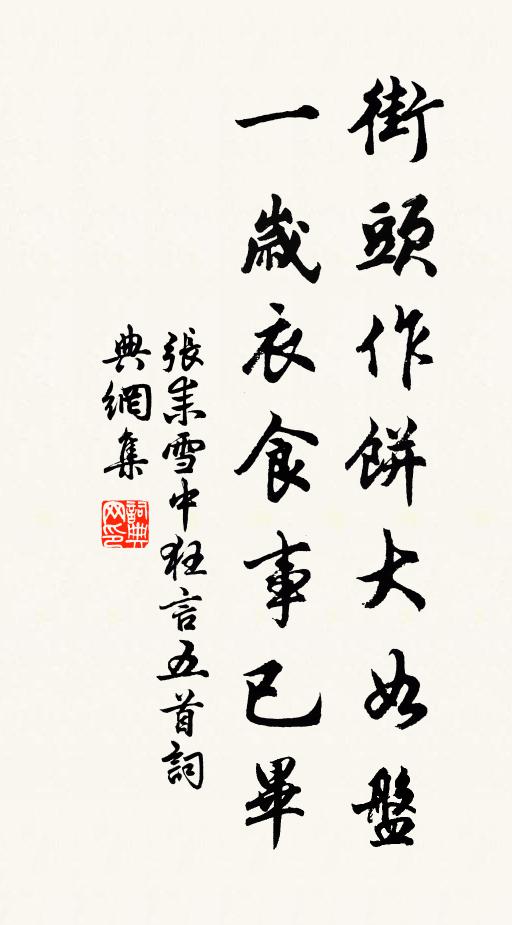 街頭作餅大如盤
一歲衣食事已畢
張耒雪中狂言五首詞
典網集
詞典
网印